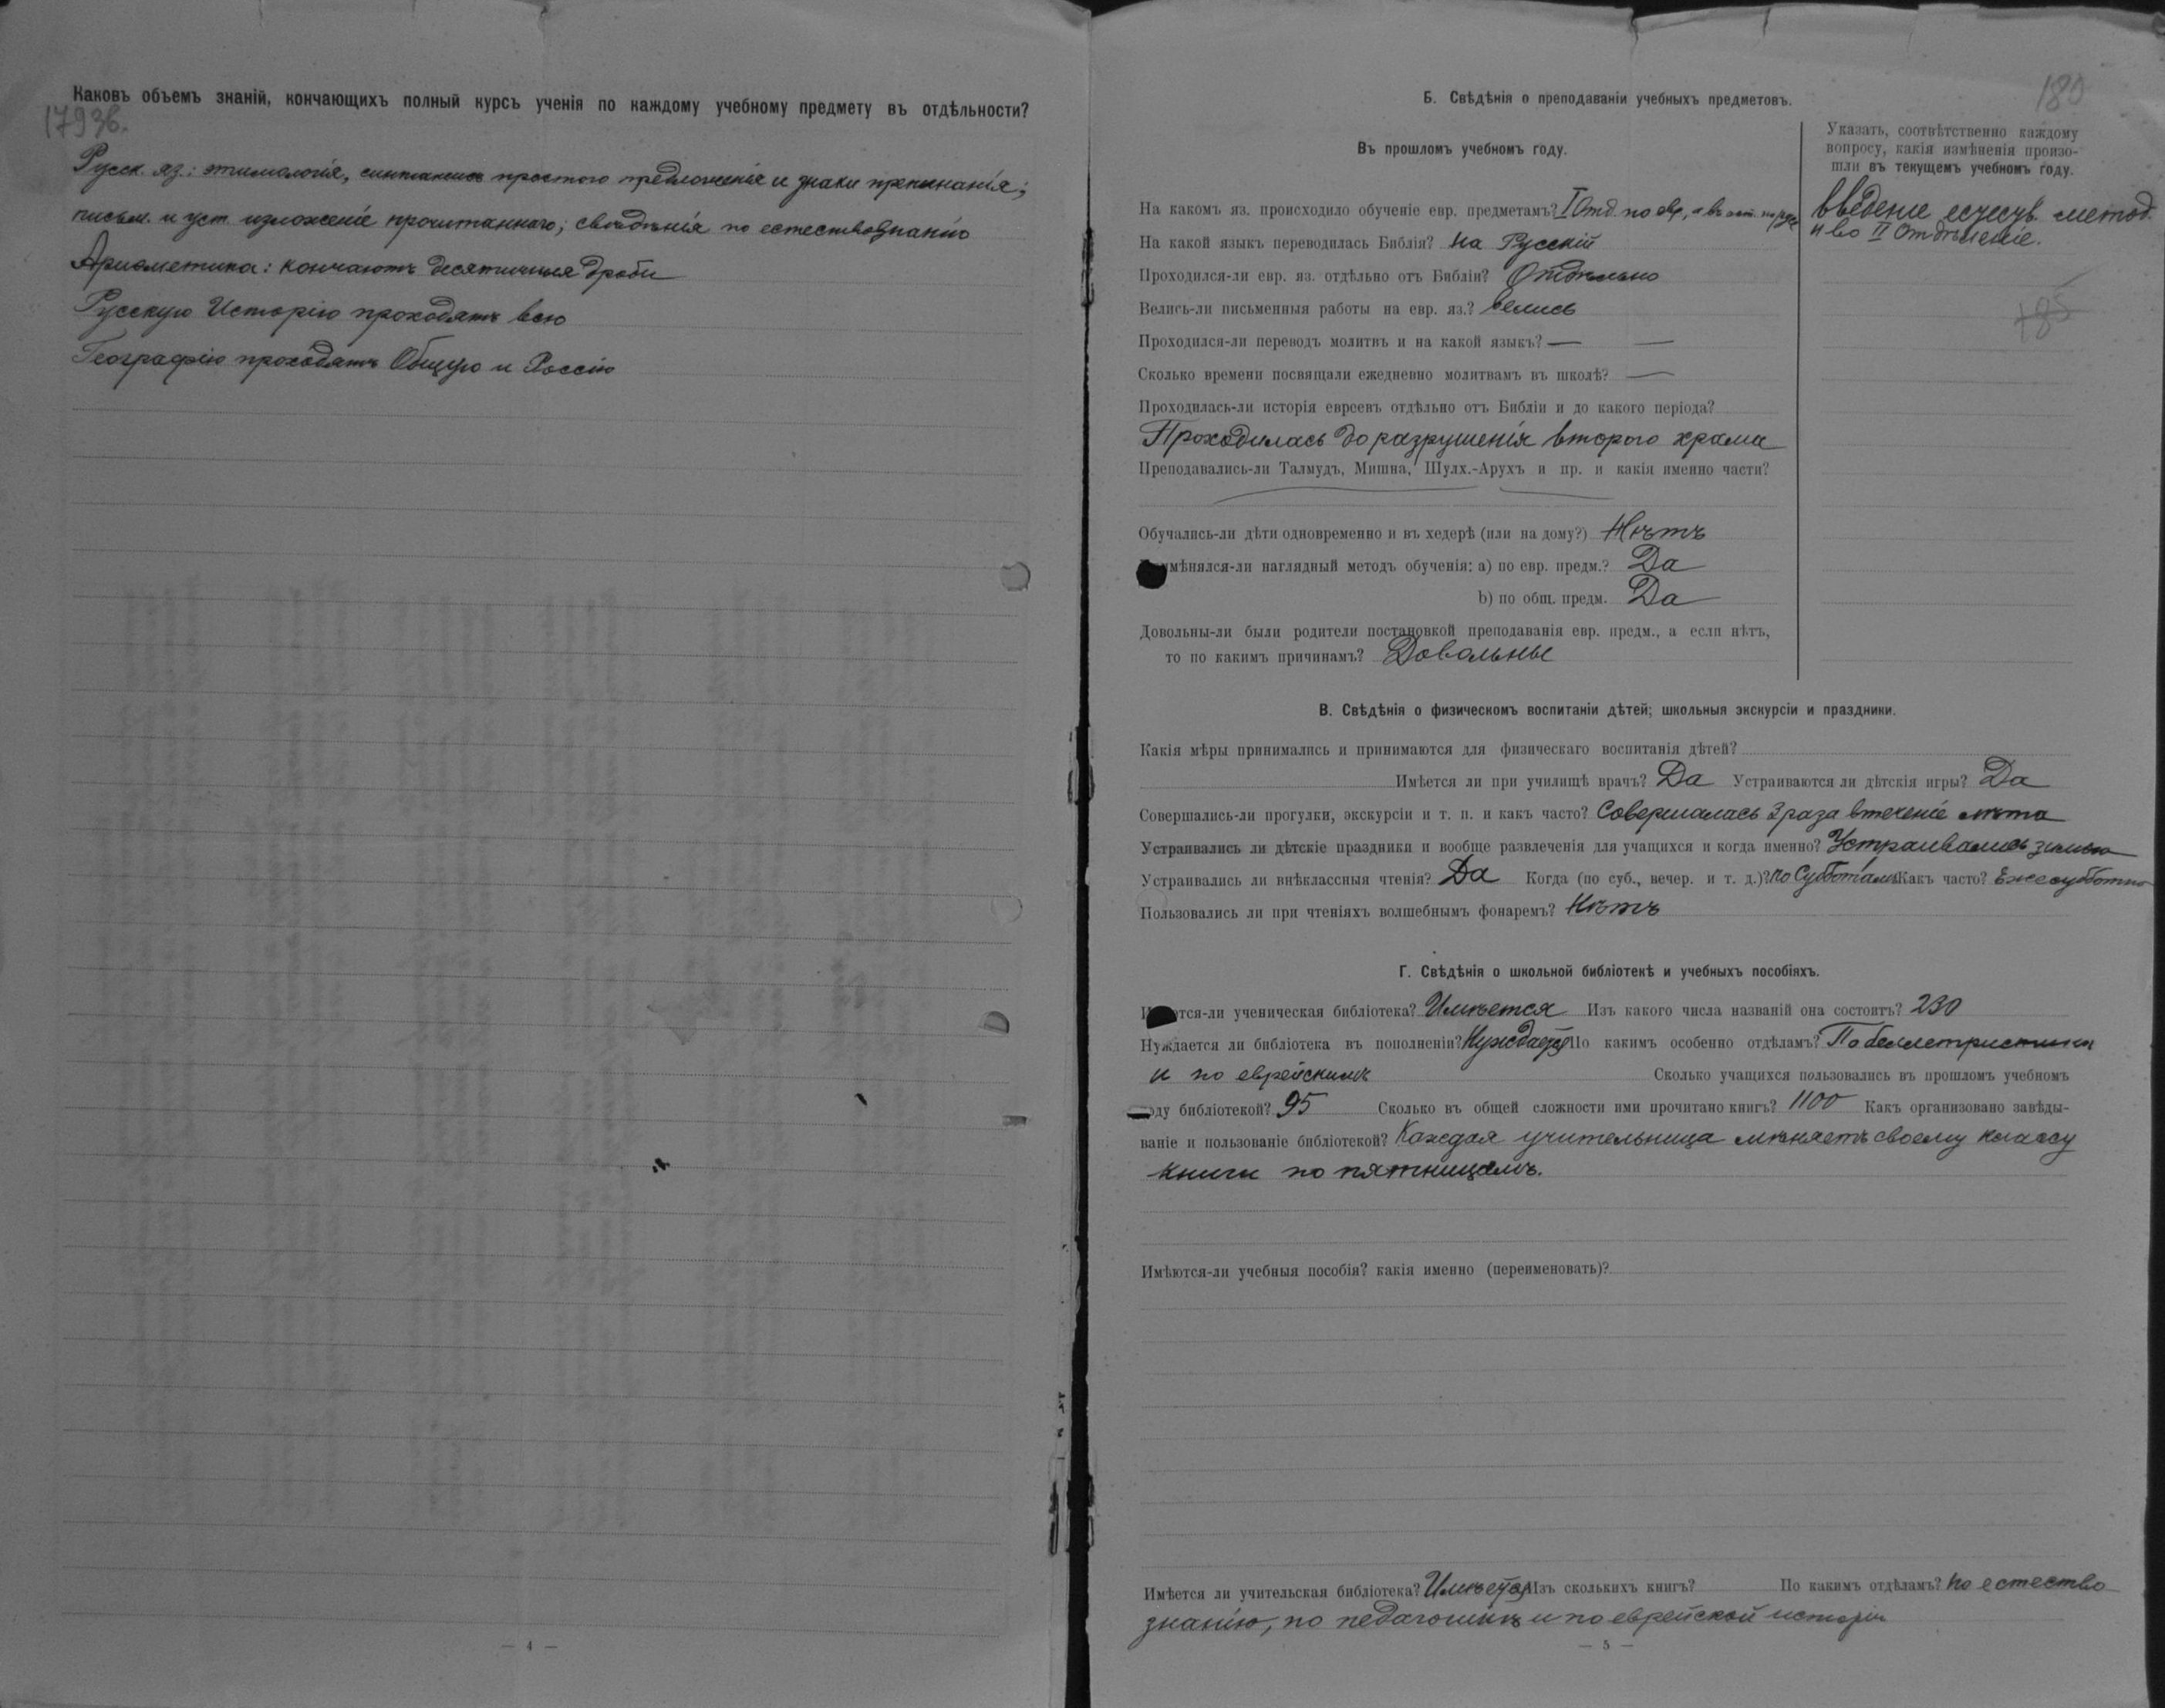 Каковъ объемъ знаній, кончающихъ полный курсъ ученія по каждому учебному предмету въ отдѣльности?
179зв.
Русск. яз.: этимологія, синтаксисъ простого предложенія и знаки препинанія;
письм. и уст. изложеніе прочитаннаго; свѣдѣнія по естествознанію
Ариѳметика: кончаютъ десятичныя дроби
Русскую Исторію проходятъ всю
Географію проходятъ Общую и Россію
— 4 —
180
Б. Свѣдѣнія о преподаваніи учебныхъ предметовъ.
Въ прошломъ учебномъ году.
Указать, соотвѣтственно каждому
вопросу, какія измѣненія произо-
шли въ текущемъ учебномъ году.
На какомъ яз. происходило обученіе евр. предметамъ? I Отд. по евр., а въ ост. по рус
введеніе естеств. метод.
и во II Отдѣленіе.
На какой языкъ переводилась Библія? на Русскій
Проходился-ли евр. яз. отдѣльно отъ Библіи? Отдѣльно
Велись-ли письменныя работы на евр. яз.? велись
185
Проходился-ли переводъ молитвъ и на какой языкъ? — —
Сколько времени посвящали ежедневно молитвамъ въ школѣ? —
Проходилась-ли исторія евреевъ отдѣльно отъ Библіи и до какого періода?
Проходилась до разрушенія второго храма
Преподавались-ли Талмудъ, Мишна, Шулх.-Арухъ и пр. и какія именно части?
Обучались-ли дѣти одновременно и въ хедерѣ (или на дому?) Нѣтъ
имѣнялся-ли наглядный методъ обученія: а) по евр. предм.? Да
b) по общ. предм. Да
Довольны-ли были родители постановкой преподаванія евр. предм., а если нѣтъ,
то по какимъ причинамъ? Довольны
В. Свѣдѣнія о физическомъ воспитаніи дѣтей; школьныя экскурсіи и праздники.
Какія мѣры принимались и принимаются для физическаго воспитанія дѣтей?
Имѣется ли при училищѣ врачъ? Да Устраиваются ли дѣтскія игры? Да
Совершались-ли прогулки, экскурсіи и т. п. и какъ часто? Совершалась 3 раза втеченіе лѣта
Устраивались ли дѣтскіе праздники и вообще развлеченія для учащихся и когда именно? Устраивались зимою
Устраивались ли внѣклассныя чтенія? Да Когда (по суб., вечер. и т. д.)? по Субботамъ Какъ часто? Ежесубботно
Пользовались ли при чтеніяхъ волшебнымъ фонаремъ? Нѣтъ
Г. Свѣдѣнія о школьной библіотекѣ и учебныхъ пособіяхъ.
И ется-ли ученическая библіотека? Имѣется Изъ какого числа названій она состоитъ? 230
Нуждается ли библіотека въ пополненіи? Нуждается По какимъ особенно отдѣламъ? По беллетристики
и по еврейскимъ Сколько учащихся пользовались въ прошломъ учебномъ
оду библіотекой? 95 Сколько въ общей сложности ими прочитано книгъ? 1100 Какъ организовано завѣды-
ваніе и пользованіе библіотекой? Каждая учительница мѣняетъ своему классу
книги по пятницамъ.
Имѣются-ли учебныя пособія? какія именно (переименовать)?
Имѣется ли учительская библіотека? Имѣется Изъ сколькихъ книгъ? По какимъ отдѣламъ? по естество
знанію, по педагогикѣ и по еврейской исторіи
— 5 —